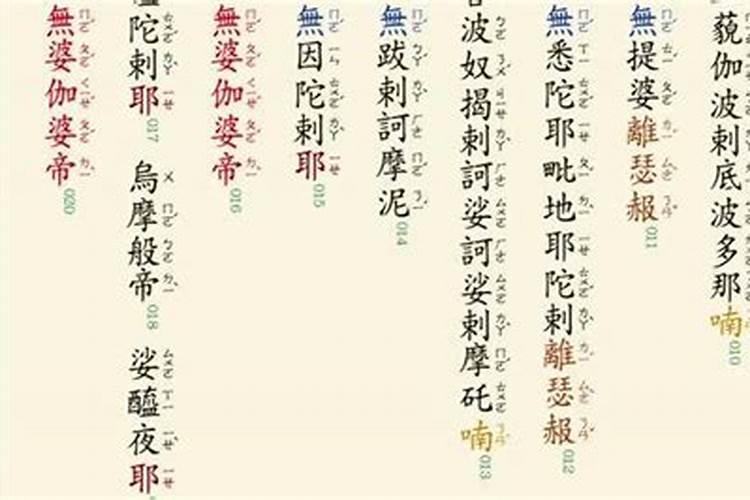 藐伽波剌底波多那喃 010
無提婆離瑟赧 011
無悉陀耶毗地耶陀剌離瑟赧 012
波奴揭剌訶娑訶娑剌摩矺喃 013
無跋剌訶摩泥 014
無因陀剌耶 015
無婆伽婆帝 016
陀剌耶 017 烏摩般帝 018 娑醯夜耶
無婆伽婆帝 020